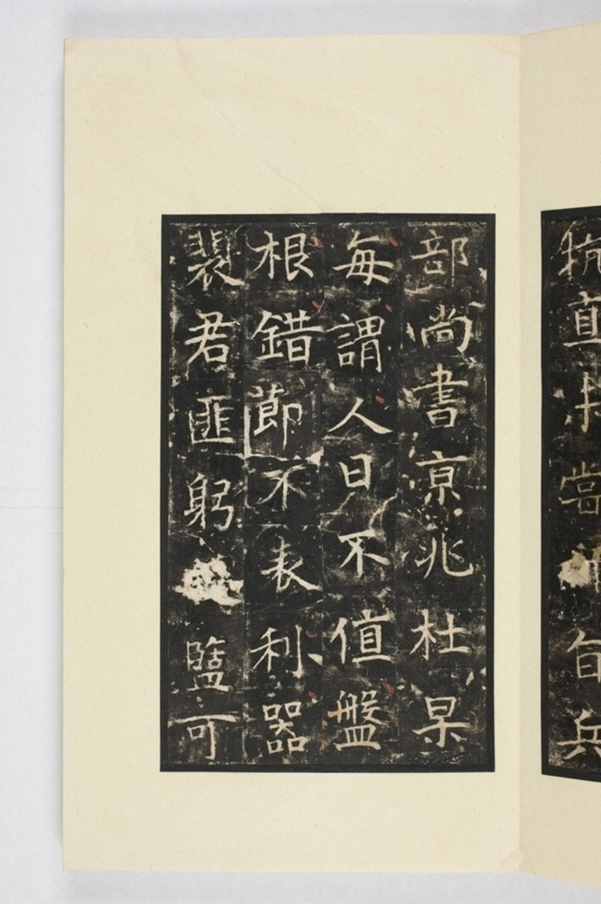 兵
部尚書京兆杜杲
每謂人曰不值盤
根錯節不表利器
裴君匪躬盬可